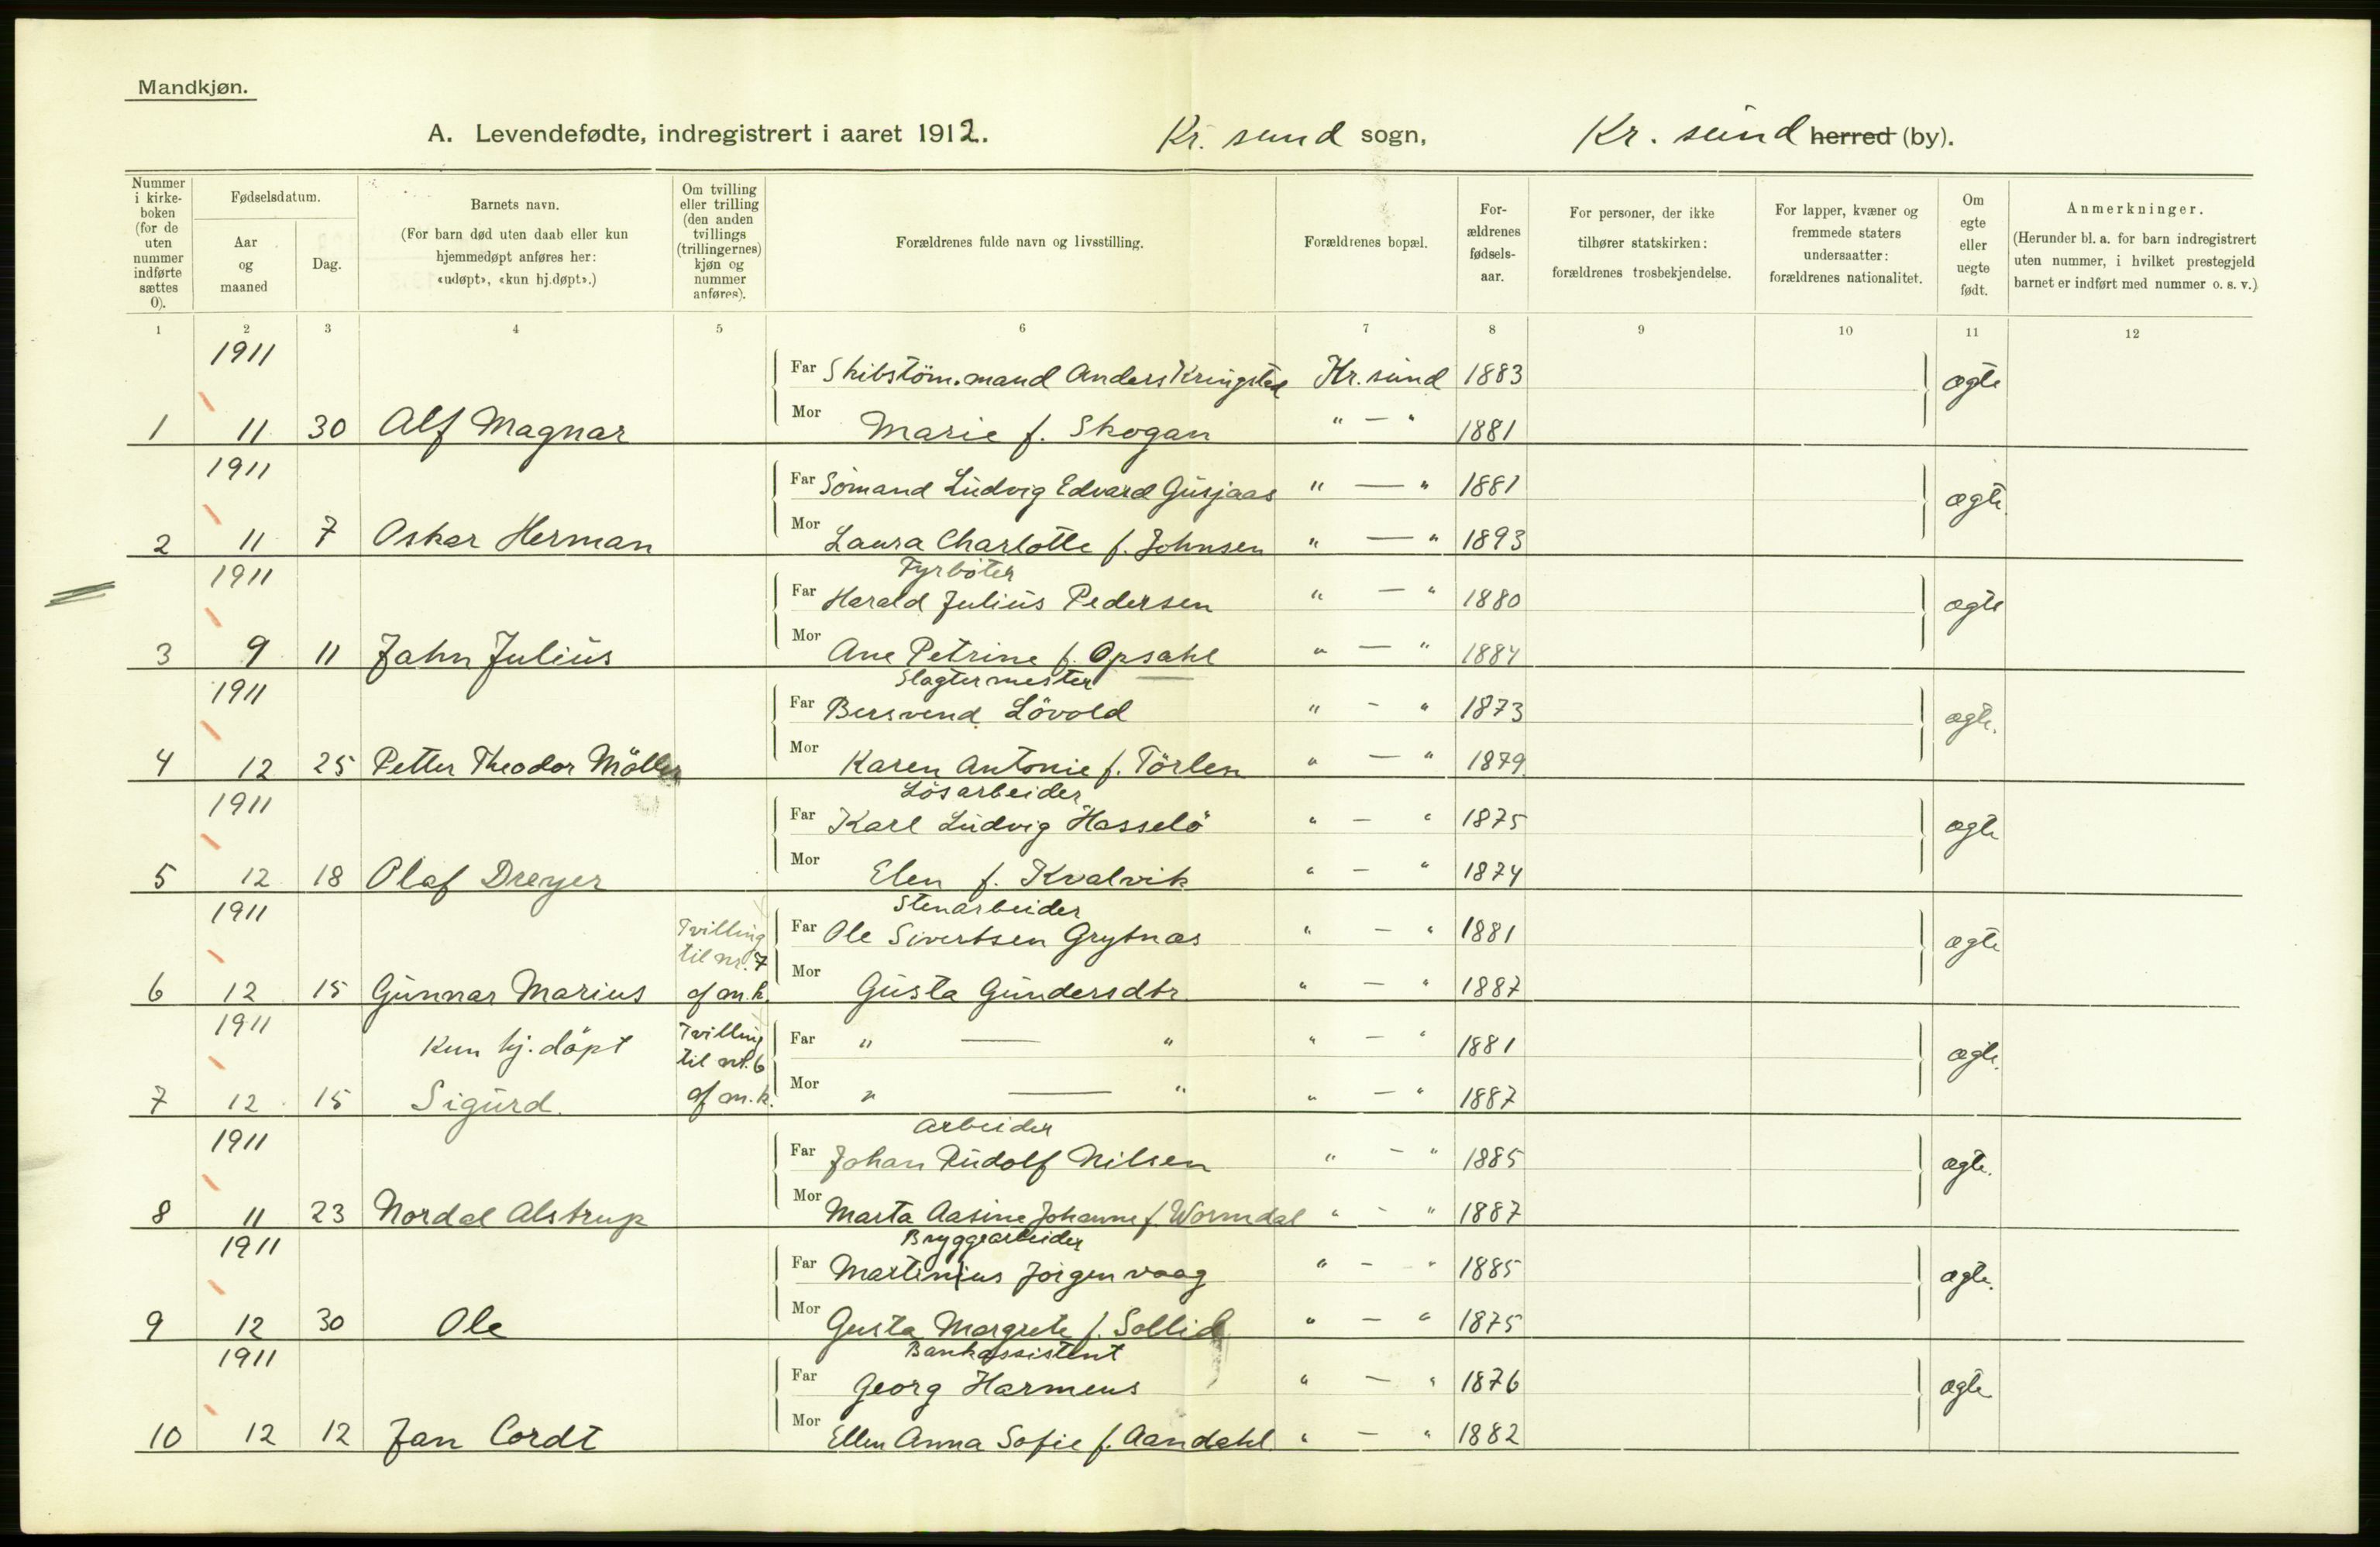 Mandkjøn.
A. Levendefødte, indregistrert i aaret 1912. Kr. sund sogn, Kr. sund herred (by).
Nummer i kirke-boken (for de uten nummer indførte sættes 0).
Fødselsdatum.
Aar og maaned
Dag.
Barnets navn.
(For barn død uten daab eller kun hjemmedøpt anføres her: «udøpt», «kun hj.døpt».)
Om tvilling eller trilling (den anden tvillings (trillingernes) kjøn og nummer anføres).
Forældrenes fulde navn og livsstilling.
Forældrenes bopæl.
For-ældrenes fødsels-aar.
For personer, der ikke tilhører statskirken: forældrenes trosbekjendelse.
For lapper, kvæner og fremmede staters undersaatter: forældrenes nationalitet.
Om egte eller uegte født.
Anmerkninger.
(Herunder bl. a. for barn indregistrert uten nummer, i hvilket prestegjeld barnet er indført med nummer o. s. v.)
1 2 3 4 5 6 7 8 9 10 11 12
1911
Far Skibstöm.mand Anders Kringstad Kr. sund 1883 ægte
Mor
1 11 30 Alf Magnar Marie f. Skogan " — " 1881
1911
Far Sömand Ludvig Edvard Gusjaas " — " 1881 ægte
Mor
2 11 7 Oskar Herman Laura Charlotte f. Johnsen " — " 1893
1911 Fyrböter
Far Harald Julius Pedersen " — " 1880 ægte
Mor
3 9 11 Jahn Julius Ane Petrine f. Opsahl " — " 1884
1911 Slagtermester
Far Bersvend Lövold " - " 1873 ægte.
Mor
4 12 25 Petter Theodor Möller Karen Antonie f. Törlen " — " 1879
1911 Lösarbeider
Far Karl Ludvig Hasselö " — " 1875 ægte
Mor
5 12 18 Olaf Dreyer Elen f. Kvalvik " — " 1874
1911 Stenarbeider
Tvilling til nr. 7 Far Ole Sivertsen Grytnæs " — " 1881 ægte
Mor
6 12 15 Gunnar Marius af m.k. Gusta Gundersdtr " — " 1887
1911
Kun hj. döpt Tvilling til nr. 6 Far " — " " — " 1881 ægte.
Mor
7 12 15 Sigurd. af m.k. " — " " — " 1887
1911 Arbeider
Far Johan Rudolf Nilsen " - " 1885 ægte.
Mor
8 11 23 Nordal Alstrup Marta Aasine Johanne f. Wormdal " - " 1887
1911 Bryggearbeider
Far Martinius Jörgenvaag " - " 1885 ægte.
Mor
9 12 30 Ole Gusta Margrete f. Sollid " — " 1875
1911 Bankassistent
Far Georg Harmens " — " 1876 ægte
Mor
10 12 12 Jan Cordt Ellen Anna Sofie f. Aandahl " — " 1882